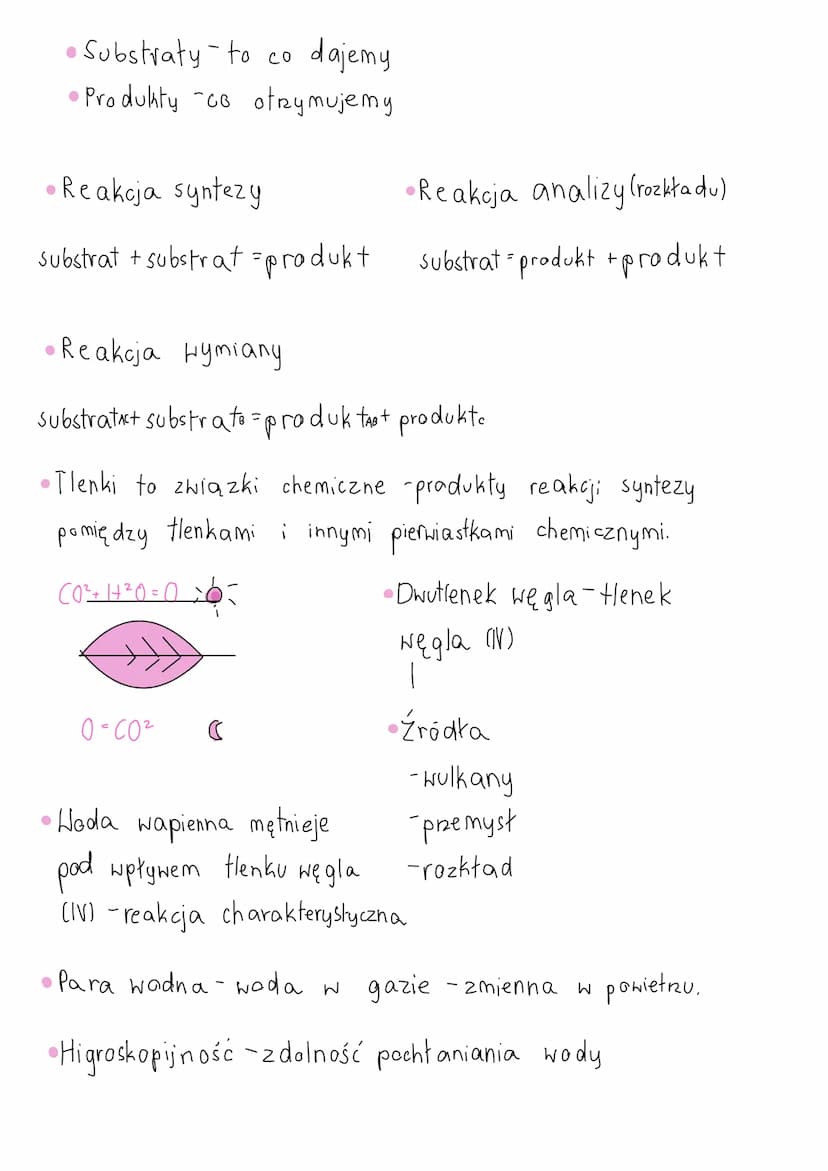 • Substraty - to co dajemy
• Produkty - co otrzymujemy
• Reakcja syntezy
substrat + substrat = produkt
• Reakcja analizy (rozkładu)
substrat = produkt + produkt
• Reakcja wymiany
substratAC + substratB = produktAB + produktC
• Tlenki to związki chemiczne - produkty reakcji syntezy
pomiędzy tlenkami i innymi pierwiastkami chemicznymi.
CO² + H²O = O
O = CO²
• Dwutlenek węgla - tlenek
węgla (IV)
• Źródła
- wulkany
- przemysł
- rozkład
• Woda wapienna mętnieje
pod wpływem tlenku węgla
(IV) - reakcja charakterystyczna
• Para wodna - woda w gazie - zmienna w powietrzu.
• Higroskopijność - zdolność pochłaniania wody